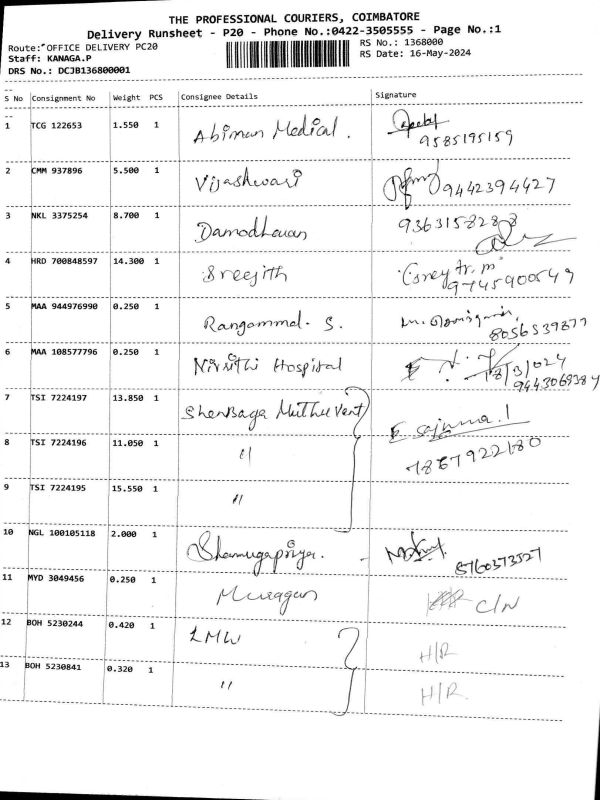 THE PROFESSIONAL COURIERS, COIMBATORE
Delivery Runsheet - P20 - Phone No.:0422-3505555 - Page No.:1
Route: OFFICE DELIVERY PC20 RS No.: 1368000
Staff: KANAGA.P RS Date: 16-May-2024
DRS No.: DCJB136800001
S No Consignment No Weight PCS Consignee Details Signature
1 TCG 122653 1.550 1 Abiman Medical.
9585195159
2 CMM 937896 5.500 1 Vijashwari 9442394427
3 NKL 3375254 8.700 1 Damodharan 9363158288
4 HRD 700848597 14.300 1 Sreejith
9745900549
5 MAA 944976990 0.250 1 Rangammal. S.
8056539877
6 MAA 108577796 0.250 1 Niruthi Hospital
7 TSI 7224197 13.850 1 Shenbaga Muthu Vent
8 TSI 7224196 11.050 1 "
7867922180
9 TSI 7224195 15.550 1 "
10 NGL 100105118 2.000 1 Shamugapriya.
8760373527
11 MYD 3049456 0.250 1 Murugan C/N
12 BOH 5230244 0.420 1 LMW H/R
13 BOH 5230841 0.320 1 " H/R